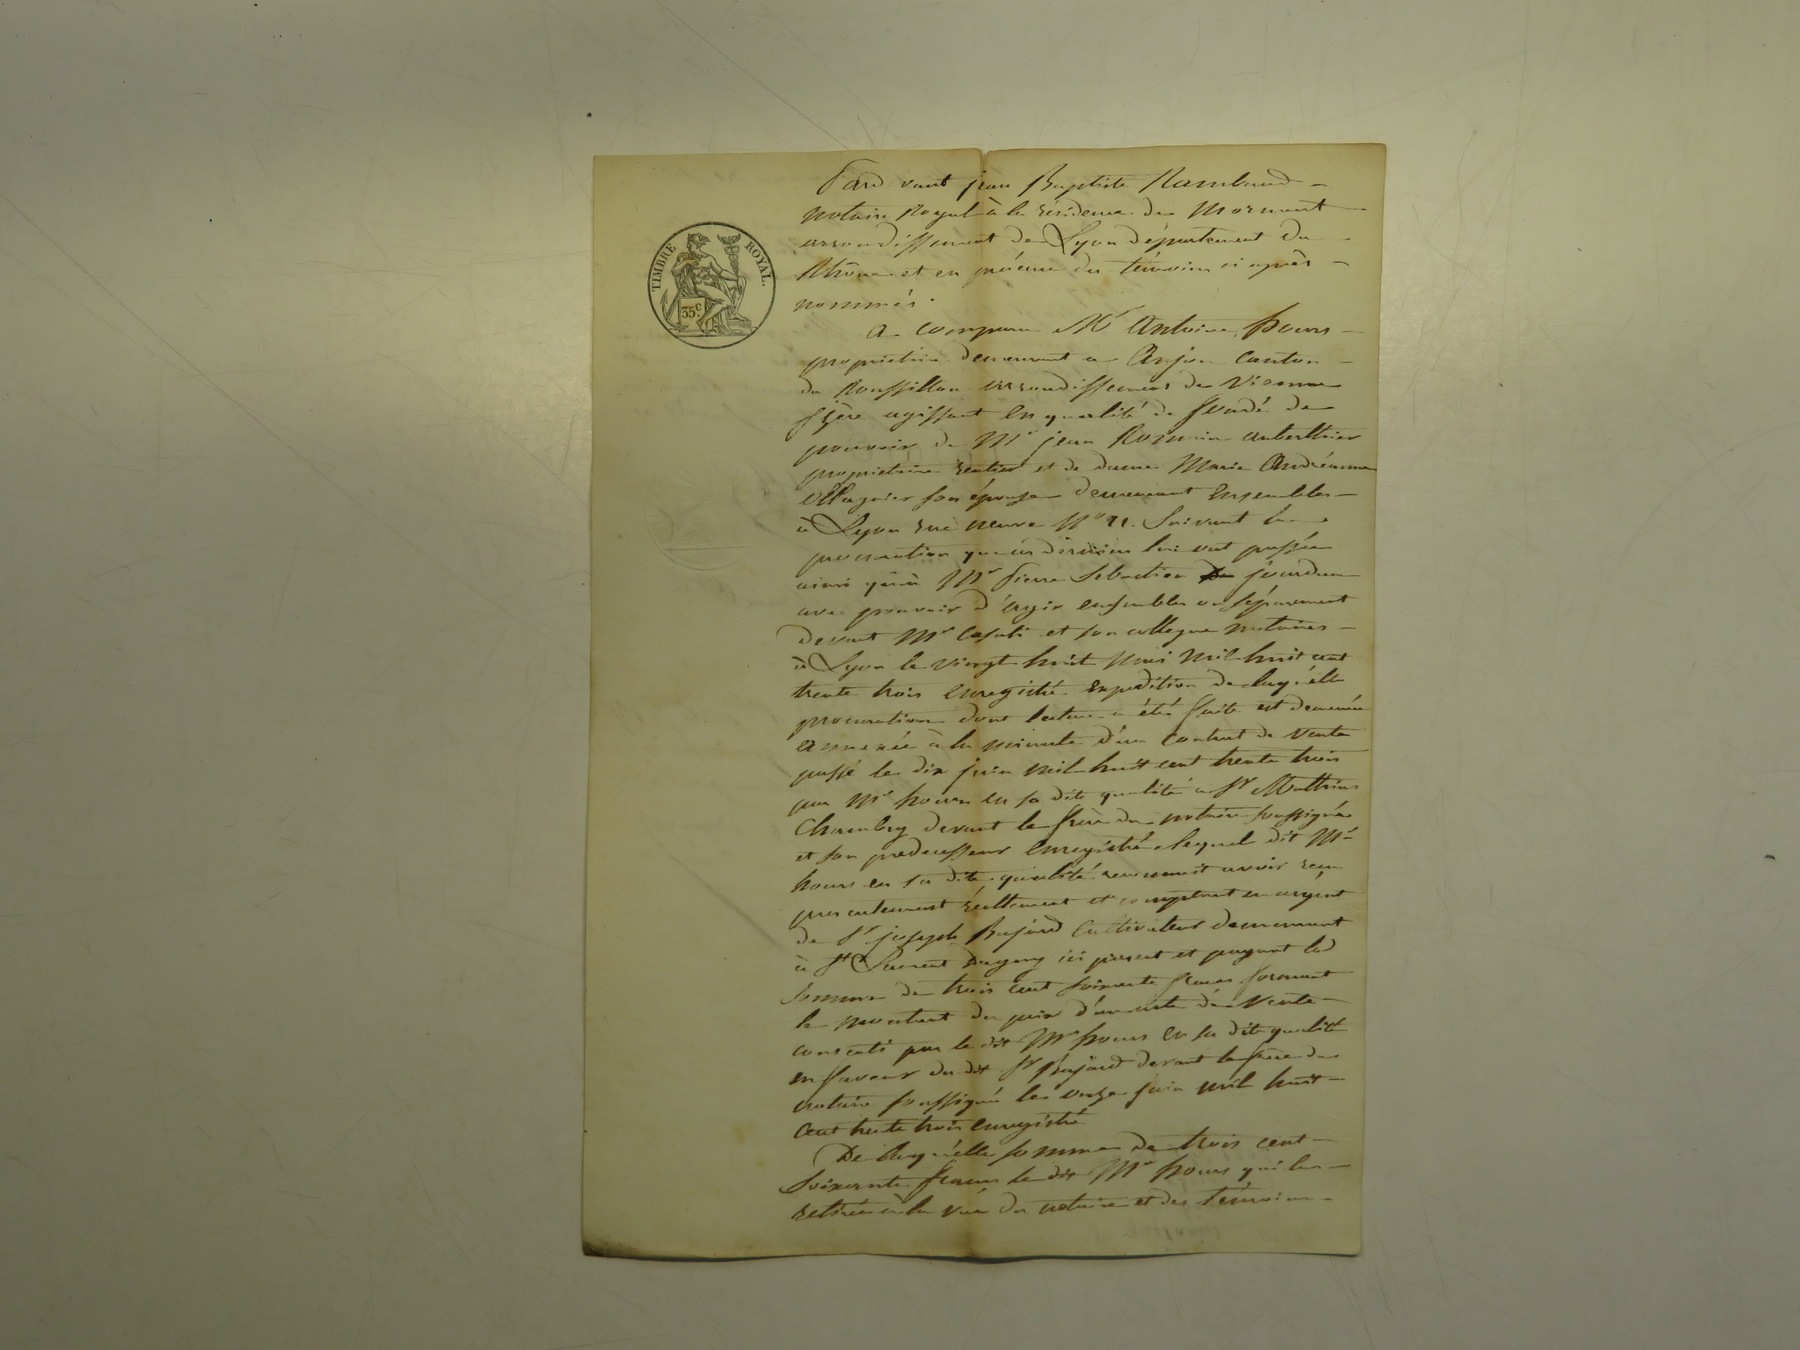 TIMBRE ROYAL.
35 c.
Pard vant jean Baptiste Rambaud
notaire Royal à la résidence de Mornant
arrondissement de Lyon département du
Rhône et en présence des témoins ci après
nommés.
A comparu Mr Antoine hours
propriétaire demeurant a Anjou canton
de Roussillon arrondissement de Vienne
isère agissant en qualité de fondé de
pouvoir de Mr jean Romain auberthier
propriétaire rentier et de dame Marie Andréanne
son épouse demeurant ensembles
à Lyon rue neuve No 21. Suivant la
procuration que ces derniers lui ont passée
ainsi qu'à Mr Pierre Sebastien jourdan
avec pouvoir d'agir ensembles ou séparement
devant Mr Casati et son collegue notaires
à Lyon le vingt huit mai mil huit cent
trente trois enregistré expedition de laquelle
procuration dont lecture a été faite est demeurée
annexée à la minute d'un contrat de vente
passé le dix juin mil huit cent trente trois
par Mr hours en sa dite qualité a Sr Mathieu
Chambry devant le frère du notaire soussigné
et son predecesseur enregistré lequel dit Mr
hours en sa dite qualité reconnait avoir reçu
presentement réellement et comptant en argent
de Sr joseph Bajard Cultivateur demeurant
à St Laurent Dagny ici present et payant la
somme de trois cent soixante francs formant
le montant du prix d'une vente
consenti par le dit Mr hours en sa dite qualité
en faveur du dit Sr Bajard devant le frère du
notaire soussigné le onze juin mil huit
cent trente trois enregistré
De laquelle somme de trois cent
soixante francs le dit Mr hours qui l'a
retirée à la vue du notaire et des témoins